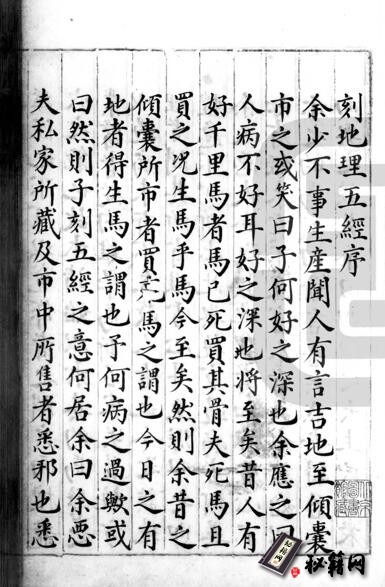 刻地理五經序
余少不事生産聞人有言吉地至傾囊
市之或笑曰子何好之深也余應之曰
人病不好耳好之深地將至矣昔人有
好千里馬者馬已死買其骨夫死馬且
買之况生馬乎馬今至矣然則余昔之
傾囊所市者買死馬之謂也今日之有
地者得生馬之謂也予何病之過歟或
曰然則子刻五經之意何居余曰余惡
夫私家所藏及市中所售者悉邪也悉
秘籍网